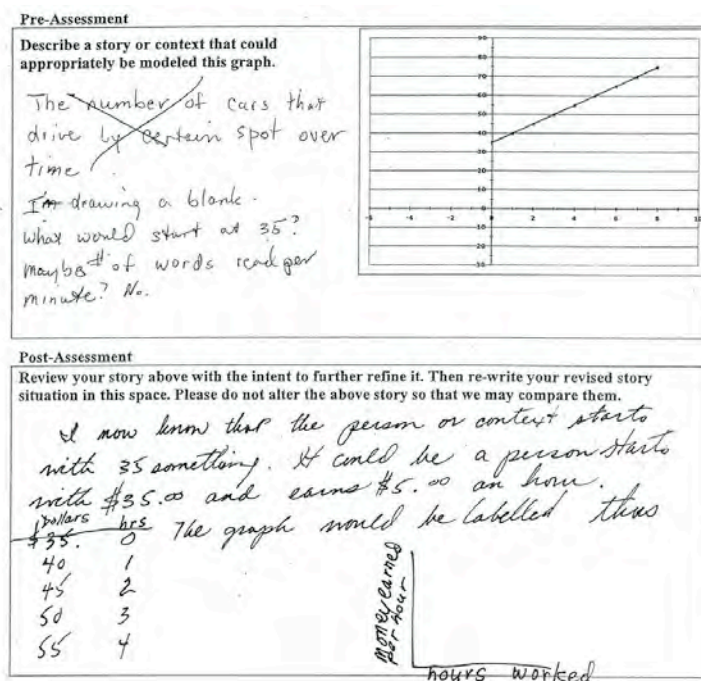 Pre-Assessment
Describe a story or context that could
appropriately be modeled this graph.
The number of cars that
drive by certain spot over
time.
I'm drawing a blank.
What would start at 35?
maybe # of words read per
minute? No.
90
80
70
60
50
40
30
20
10
0
-4 -2 0 2 4 6 8 10
-10
-20
-30
Post-Assessment
Review your story above with the intent to further refine it. Then re-write your revised story
situation in this space. Please do not alter the above story so that we may compare them.
I now know that the person or context starts
with 35 something. It could be a person starts
with $35.00 and earns $5.00 an hour.
The graph would be labelled thus
Dollars hrs
$35. 0
40 1
45 2
50 3
55 4
Money earned
per hour
hours worked